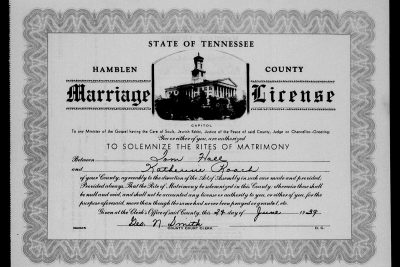 STATE OF TENNESSEE
HAMBLEN COUNTY
Marriage License
CAPITOL
To any Minister of the Gospel having the Care of Souls, Jewish Rabbi, Justice of the Peace of said County, Judge or Chancellor—Greeting:
You or either of you, are authorized
TO SOLEMNIZE THE RITES OF MATRIMONY
Between Tom Hall
and Katherine Roach
of your County, agreeably to the direction of the Act of Assembly in such case made and provided.
Provided always, That the Rites of Matrimony be solemnized in this County, otherwise these shall
be null and void, and shall not be accounted any license or authority to you, or either of you, for the
purpose aforesaid, more than though the same had never been prayed or granted.
Given at the Clerk's Office of said County, this 24 day of June 1939.
Geo. N. Smith
COUNTY COURT CLERK. D. C.